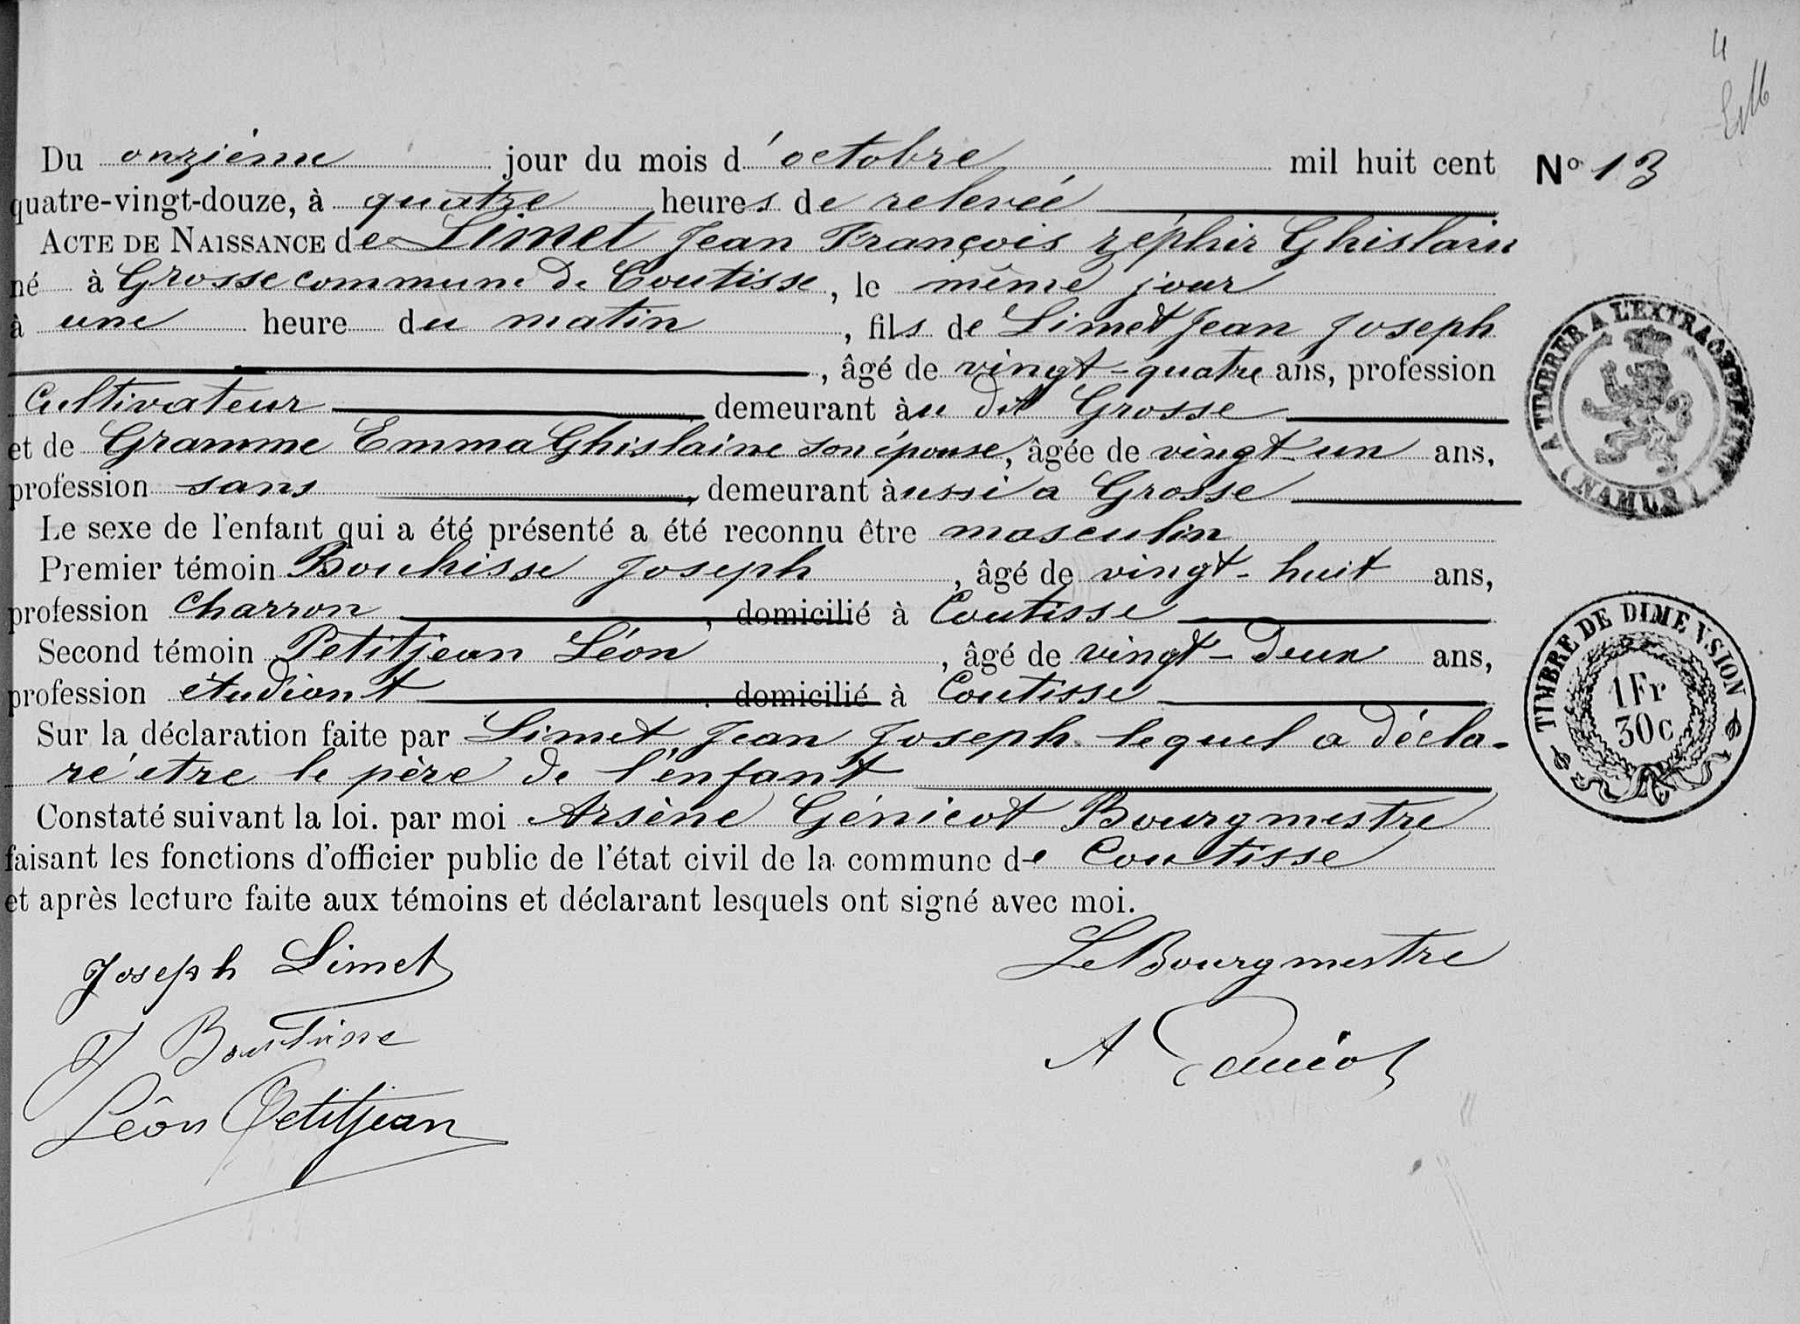 4
Du onzième jour du mois d'octobre mil huit cent
N° 13
quatre-vingt-douze, à quatre heures de relevée
ACTE DE NAISSANCE de Limet Jean François zéphir Ghislain
né à Grosse commune de Coutisse, le même jour
à une heure du matin, fils de Limet Jean Joseph
, âgé de vingt-quatre ans, profession
Cultivateur demeurant àu dit Grosse
et de Gramme Emma Ghislaine son épouse, âgée de vingt-un ans,
profession sans, demeurant àussi a Grosse
Le sexe de l'enfant qui a été présenté a été reconnu être masculin
Premier témoin Bouhisse Joseph, âgé de vingt-huit ans,
profession Charron, domicilié à Coutisse
Second témoin Petitjean Léon, âgé de vingt-deux ans,
profession étudiant, domicilié à Coutisse
Sur la déclaration faite par Limet Jean Joseph lequel a décla-
ré etre le père de l'enfant
Constaté suivant la loi. par moi Arsène Génicot Bourgmestre
faisant les fonctions d'officier public de l'état civil de la commune de Coutisse
et après lecture faite aux témoins et déclarant lesquels ont signé avec moi.
Joseph Limet
Le Bourgmestre
J Boutisse
A Génicot
Léon Petitjean
A TIMBRER A L'EXTRAORDINAIRE
(NAMUR)
TIMBRE DE DIMENSION
1 Fr
30 c